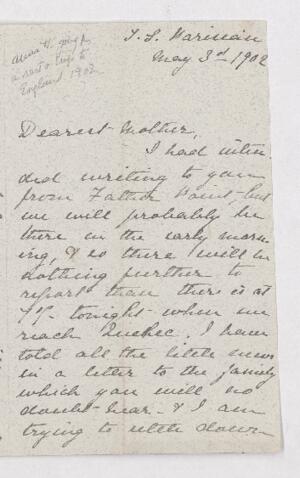 Anna H. going for
a rest & trip to
England 1902
May 3rd 1902
Dearest Mother,
I had inten-
ded writing to you
from Father Point, but
we will probably be
there in the early morn-
ing, & so there will be
nothing further to
report than there is at
tonight when we
reach Quebec. I have
told all the little news
in a letter to the family
which you will no
doubt hear. & I am
trying to settle down